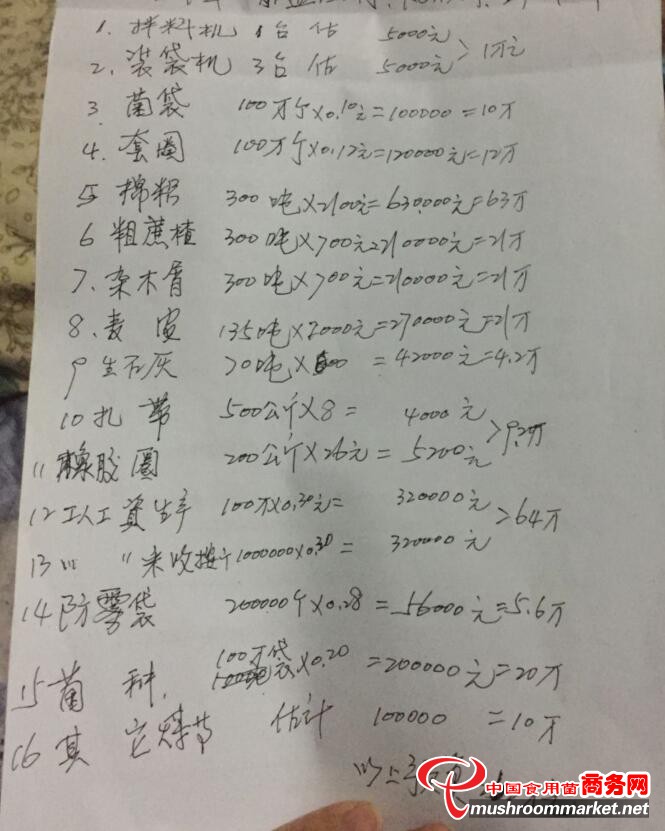 1. 拌料机 1台 估 5000元
2. 装袋机 3台 估 5000元 >1万元
3 菌袋 100万个×0.10元=100000=10万
4. 套圈 100万个×0.12元=120000元=12万
5 棉籽 300吨×2100元=630000元=63万
6 粗蔗楂 300吨×700元=210000元=21万
7. 杂木屑 300吨×700元=210000元=21万
8. 麦 135吨×2000元=270000元=21万
9 生石灰 70吨× =42000元=4.2万
10 扎带 500公斤×8= 4000元
11 橡胶圈 200公斤×26元=5200元 >9.2
12 工人工资生产 100万×0.30元= 320000元
13 〃 〃 采收按个1000000×0.30= 320000元 >64万
14 防雾袋 200000个×0.28=56000元=5.6万
15 菌种. 100万袋×0.20=200000元=20万
16 其它 估计 100000 =10万
以上
中国食用菌商务网
mushroommarket.net